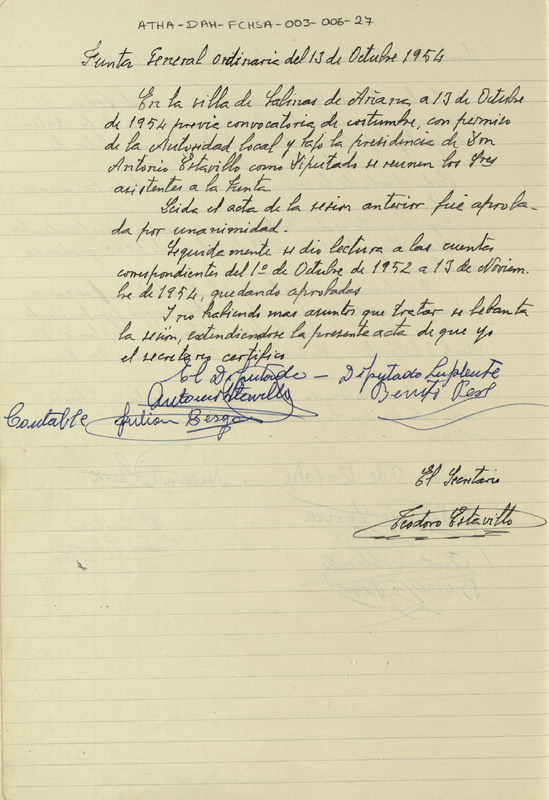 ATHA-DAH-FCHSA-003-006-27
Junta General ordinaria del 13 de Octubre 1954
En la villa de Salinas de Añana, a 13 de Octubre
de 1954 previa convocatoria de costumbre, con permiso
de la Autoridad local y bajo la presidencia de Don
Antonio Estavillo como Diputado se reunen los Sres
asistentes a la Junta
Leida el acta de la sesion anterior fué aproba-
da por unanimidad.
Seguidamente se dio lectura a las cuentas
correspondientes del 1º de Octubre de 1952 a 13 de Noviem-
bre de 1954, quedando aprobadas
Y no habiendo mas asuntos que tratar se lebanta
la sesión, extendiendose la presente acta de que yo
el secretario certifico
El Diputado — Diputado Suplente
Antonio Estavillo Benito
Contable Julian
El Secretario
Teodoro Estavillo